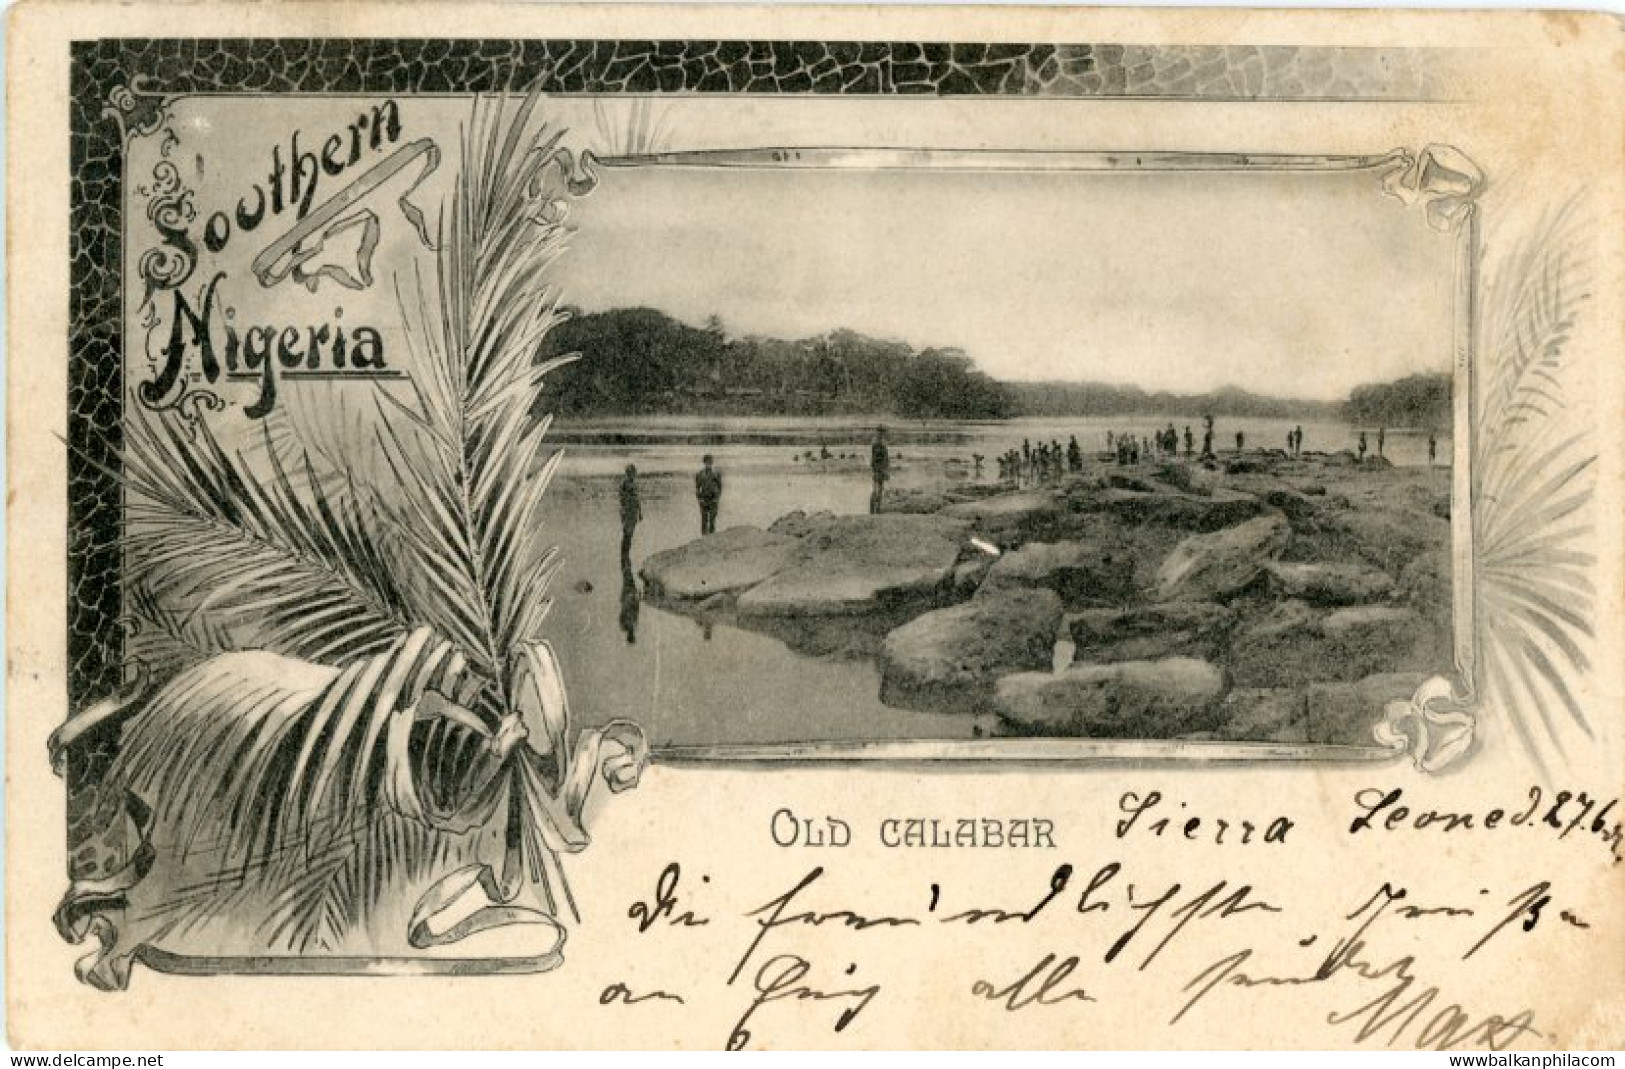 Southern
Nigeria
OLD CALABAR
Sierra Leone d. 27.6.
Die freundlichsten Grüßen
an Euch alle sendet
Max
delcampe.net
www.balkanphilacom